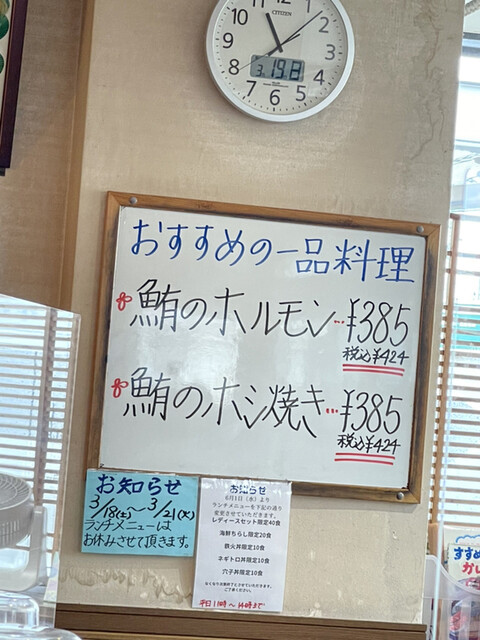 12
11
10
9
8
7
6
5
4
3
2
1
CITIZEN
3.19.8
おすすめの一品料理
鮪のホルモン…¥385
税込¥424
鮪のホシ焼き…¥385
税込¥424
お知らせ
3/18(土)~3/21(火)
ランチメニューは
お休みさせて頂きます。
お知らせ
6月1日（水）より
ランチメニューを下記の通り
変更させていただきます。
レディースセット限定40食
海鮮ちらし限定20食
鉄火丼限定10食
ネギトロ丼限定10食
穴子丼限定10食
なくなり次第終了とさせていただきます。
ご了承ください。
平日11時～14時まで
すすめ